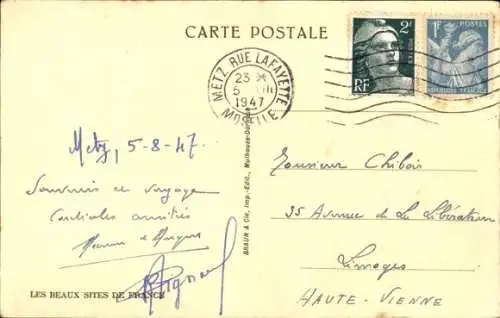 CARTE POSTALE
2F
RF
1F
POSTES
METZ RUE LAFAYETTE
23 H
5 VIII
1947
MOSELLE
Metz, 5-8-47
Souvenirs de voyage
Cordiales amitiés
Monsieur Chibois
35 Avenue de La Libération
Limoges
HAUTE-VIENNE
BRAUN & Cie, Imp.-Édit., Mulhouse-Dornach
LES BEAUX SITES DE FRANCE